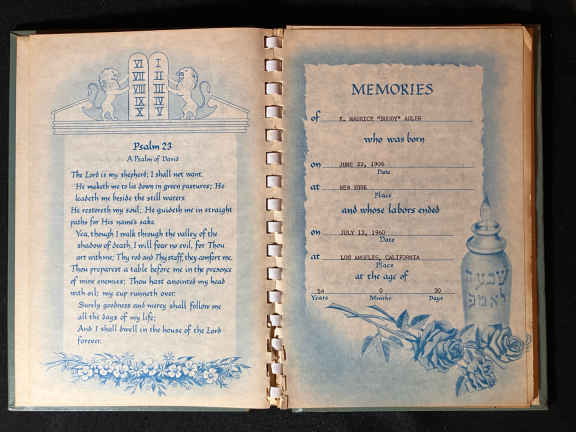 VI I
VII II
VIII III
IX IV
X V
Psalm 23
A Psalm of David
The Lord is my shepherd; I shall not want.
He maketh me to lie down in green pastures; He
leadeth me beside the still waters.
He restoreth my soul; He guideth me in straight
paths for His name's sake.
Yea, though I walk through the valley of the
shadow of death, I will fear no evil, for Thou
art with me; Thy rod and Thy staff, they comfort me.
Thou preparest a table before me in the presence
of mine enemies; Thou hast anointed my head
with oil; my cup runneth over.
Surely goodness and mercy shall follow me
all the days of my life;
And I shall dwell in the house of the Lord
forever.
MEMORIES
of E. MAURICE "BUDDY" ADLER
who was born
on JUNE 22, 1906
Date
at NEW YORK
Place
and whose labors ended
on JULY 12, 1960
Date
at LOS ANGELES, CALIFORNIA
Place
at the age of
54 0 20
Years Months Days